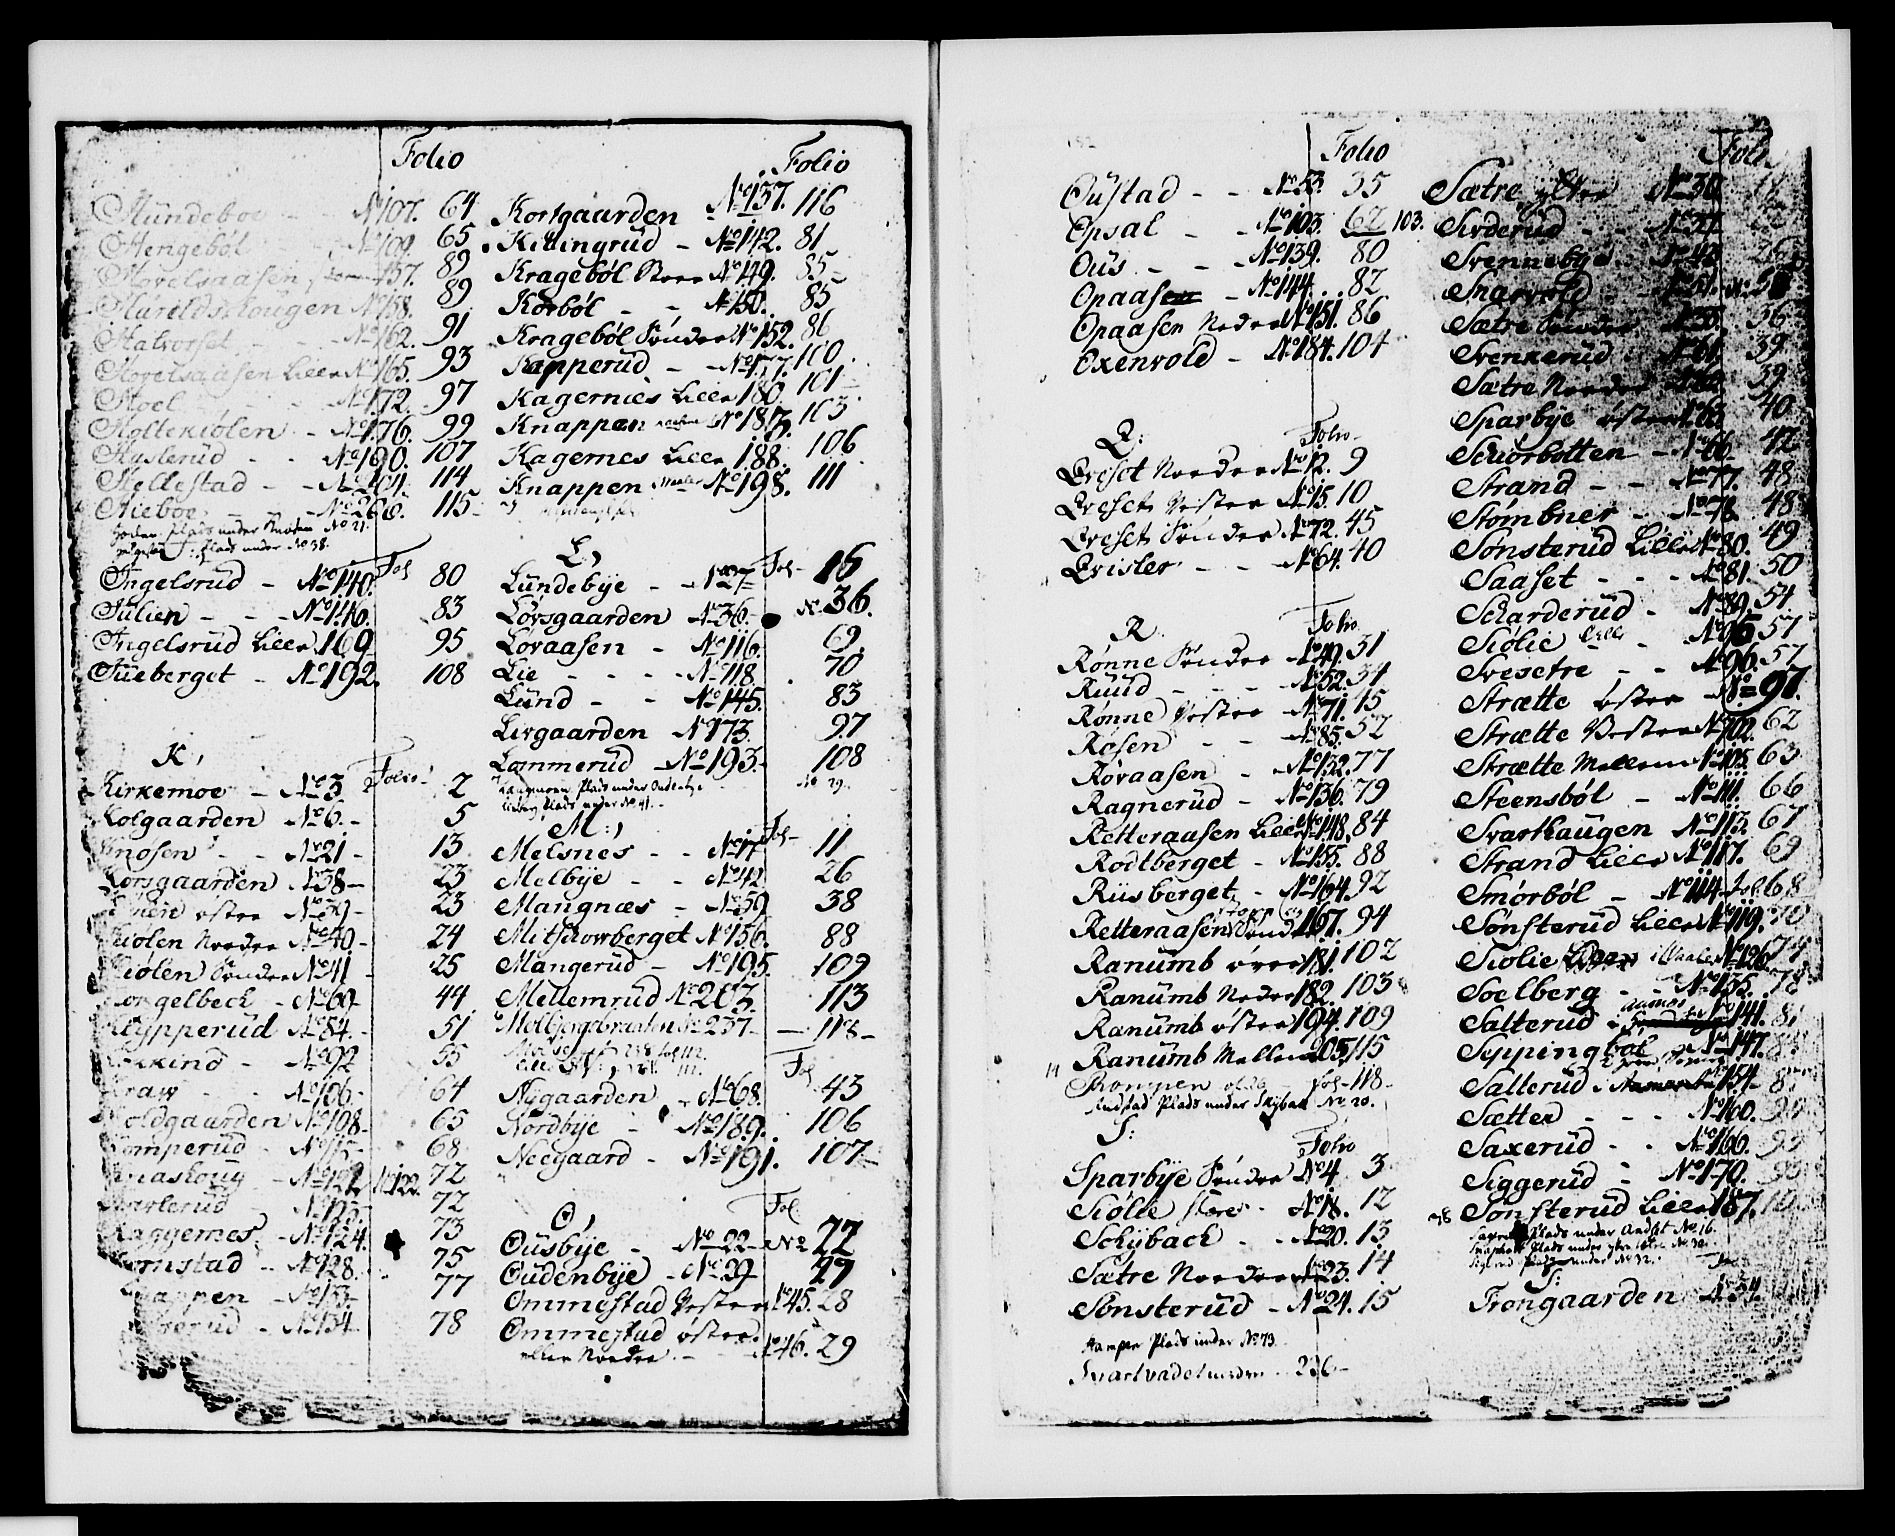 Folio
Hündeboe - - No 107. 64
Hengeböl No 109. 65
Hovelsaasen, 157. 89
Haraldshougen No 158. 89
Halvorset No 162. 91
Hovelsaasen Lille No 165. 93
Hoel - - No 172. 97
Holtekiölen - No 176. 99
Hasterud - - No 190. 107
Hellestad - - No 204. 114
Hieboe - No 206. 115-
Plads under Knosen No 21.
Plads under No 38.
Fol
Ingelsrud - No 140. 80
Julien - - - No 146. 83
Ingelsrud Lille 169 95
Jüeberget - No 192. 108
K,
Folio-
Kirkemoe - No 3 2
Kolgaarden No 6.- 5
Knosen - - No 21- 13
Korsgaarden No 38- 23
østre No 39- 23
Kiölen Nordre No 40- 24
Kiölen Söndre No 41- 25
Kongelbech - No 69- 44
Klypperud No 84- 51
No 92 55
Kraw - - No 106- 64
Koldgaarden No 108- 65
Komperud - No 115- 68
Knaskoug - No 122 No 122. 72
No 123- 72
Kaggernes - No 124. 73
No 128. 75
Knappen - No 133- 77
No 134- 78
Folio
Kortgaarden No 137. 116
Kittingrud - No 142. 81
Krageböl Store No 149. 85-
Korböl - - No 150. 85
Krageböl Söndre No 152. 86
Kapperud - - No 177. 100
Kagernies Lille 180. 101-
Knappen No 183. 103
Kagernes Lille 188. 106
Knappen No 198. 111
L,
Fol-
Lündebye - No 27- 16
Lörsgaarden No 36- No 36.
Loraasen - No 116. 69.
Lie - - - - No 118. 70
Lünd - - No 145. 83
Livgaarden No 173. 97
Lommerud - No 193.- 108
Plads under Oudenbye No 29.
Plads under No 41.-
M:,
Fol-
Melsnes - - No 17 11
Melbye - - No 42 26
Mangnæs - No 59 38
Mitskowberget No 156. 88
Mangerud - No 195. 109
Mellemrud No 203. 113
Melbyesbraaten No 237- - 118-
Fol
Nygaarden - No 68. 43
Nordbye - No 189. 106
Neegaard - No 191. 107-
O,
Fol.
Ousbye - No 22- No 22
Oudenbye - No 29 29
Ommestad Vestre No 45. 28
Ommestad østre
eller Nordre - - No 46. 29
Folio
Oustad - - No 53. 35
Opsal - - No 103. 62 103.
Ous - - - No 139. 80
Opaasen - No 144. . 82
Opaasen Nedre No 151. 86
Oxenvold - No 184. 104
Q:
Folio-
Qveset Nordre No 12. 9
Qveset Vestre No 15. 10
Qveset Söndre No 72. 45
Qvisler - - No 64. 40
R.
Folio
Rönne Söndre No 49. 31
Ruud - - - No 52. 34
Rönne Vestre No 71. 45
Rosen - - No 85. 52
Roraasen - No 132. 77
Ragnerud - No 136. 79
Retteraasen Lille No 148. 84
Rodtberget - No 155. 88
Riisberget - No 164. 92
Retteraasen 167. 94
Ranumb øvre 181. 102
Ranumb Nedre 182. 103
Ranumb østre 194. 109
Ranumb Mellem 205. 115
Rompen - Fol- 118-
Rudstad Plads under Skybak No 20.
S:
Folio
Sparbye Söndre No 4 3
Siölie store - No 18. 12
Schybach - - No 20. 13
Sætre Nordre No 23. 14
Sönsterud - No 24. 15
Hampen Plads under No 73
Svartvadet 236-
Folio
Sætre ytre No 30
Sirderud - - No 37
Svennebye No 43 26
Snarvold - - No 51.
Sætre Söndre No 55. 36
Svenkerud No 61 39
Sætre Nordre 39
Sparbye østre No 63 40
Schiörbotten - No 66. 42
Strand - - No 77. 48
Strømbner - No 78 48
Sønsterud Lille No 80. 49
Saaset - - - No 81. 50
Scharderud - No 89. 54
Siölie Lille - No 95 57
Svesetre - - No 96. 57
Strætte østre No 97.
Strætte Vestre No 102. 62
Strætte Mellem No 105 63
Steensböl - No 111. 66
Svarthaugen No 113. 67
Strand Lille No 117. 69
Smörböl - No 114. Fol. 68
Sönsterud Lille No 119. 70
Siolie No 126 74
Soelberg - - No 135. 78
Salterud No 141. 81
Seppingböl No 147. 83
Sallerud No 154.
Sætter - - - No 160.
Saxerud - - No 166. 93
Siggerud - No 170. 95
Sönsterud Lille 187.
Plads under Audset No 16.
Plads under ytre Sætre No 30.
Plads under No 32.
T:
Trongaarden No 34.